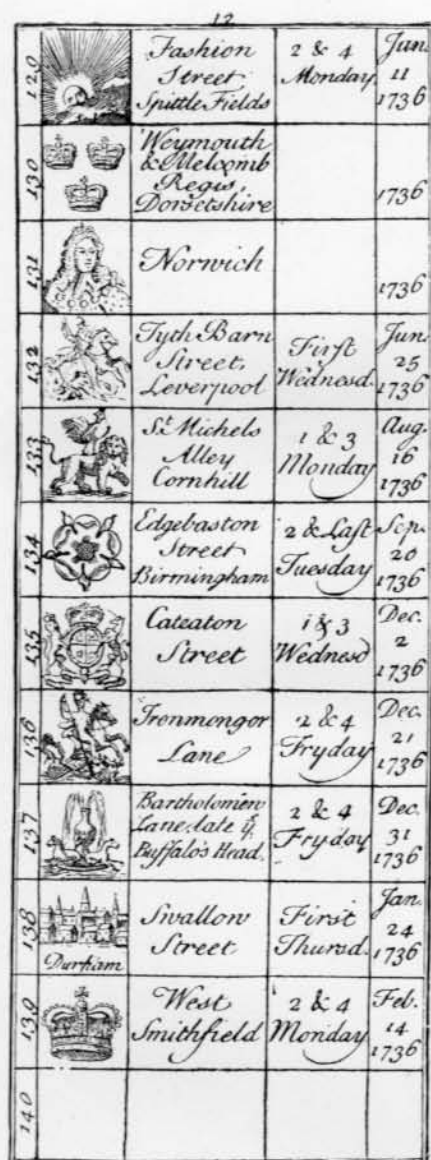 12
129
Fashion
Street
Spittle Fields
2 & 4
Monday
Jun.
11
1736
130
Weymouth
& Melcomb
Regis,
Dorsetshire
1736
131
Norwich
1736
132
Tyth Barn
Street,
Leverpool
First
Wednesd.
Jun.
25
1736
133
St. Michels
Alley
Cornhill
1 & 3
Monday
Aug.
16
1736
134
Edgebaston
Street
Birmingham
2 & Last
Tuesday
Sep.
20
1736
135
Cateaton
Street
1 & 3
Wednesd
Dec.
2
1736
136
Ironmongor
Lane
2 & 4
Fryday
Dec.
21
1736
137
Bartholomew
Lane, late ye
Buffalo's Head.
2 & 4
Fryday
Dec.
31
1736
138
Durham
Swallow
Street
First
Thursd.
Jan.
24
1736
139
West
Smithfield
2 & 4
Monday
Feb.
14
1736
140